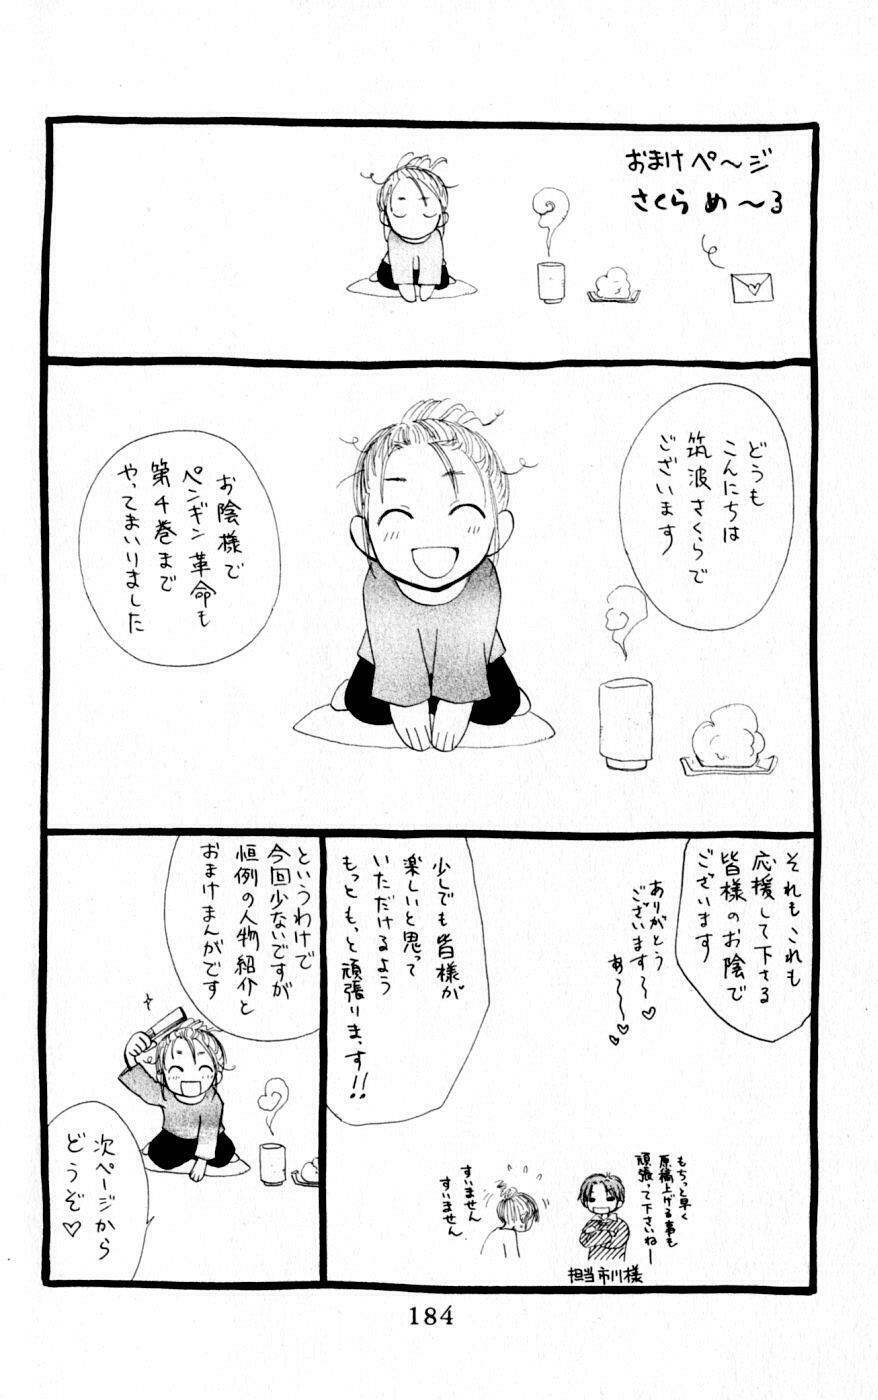 おまけペ〜ジ
さくらめ〜る
どうも
こんにちは
筑波さくらで
ございます
お陰様で
ペンギン革命も
第4巻まで
やってまいりました
それもこれも
応援して下さる
皆様のお陰で
ございます
ありがとう
ございます〜♡
あ〜〜♡♡
少しでも皆様が
楽しいと思って
いただけるよう
もっともっと頑張りまっす!!
もちっと早く
原稿上げる事も
頑張って下さいねー
担当市川様
すいません
すいません
というわけで
今回少ないですが
恒例の人物紹介と
おまけまんがです
次ページから
どうぞ♡
184